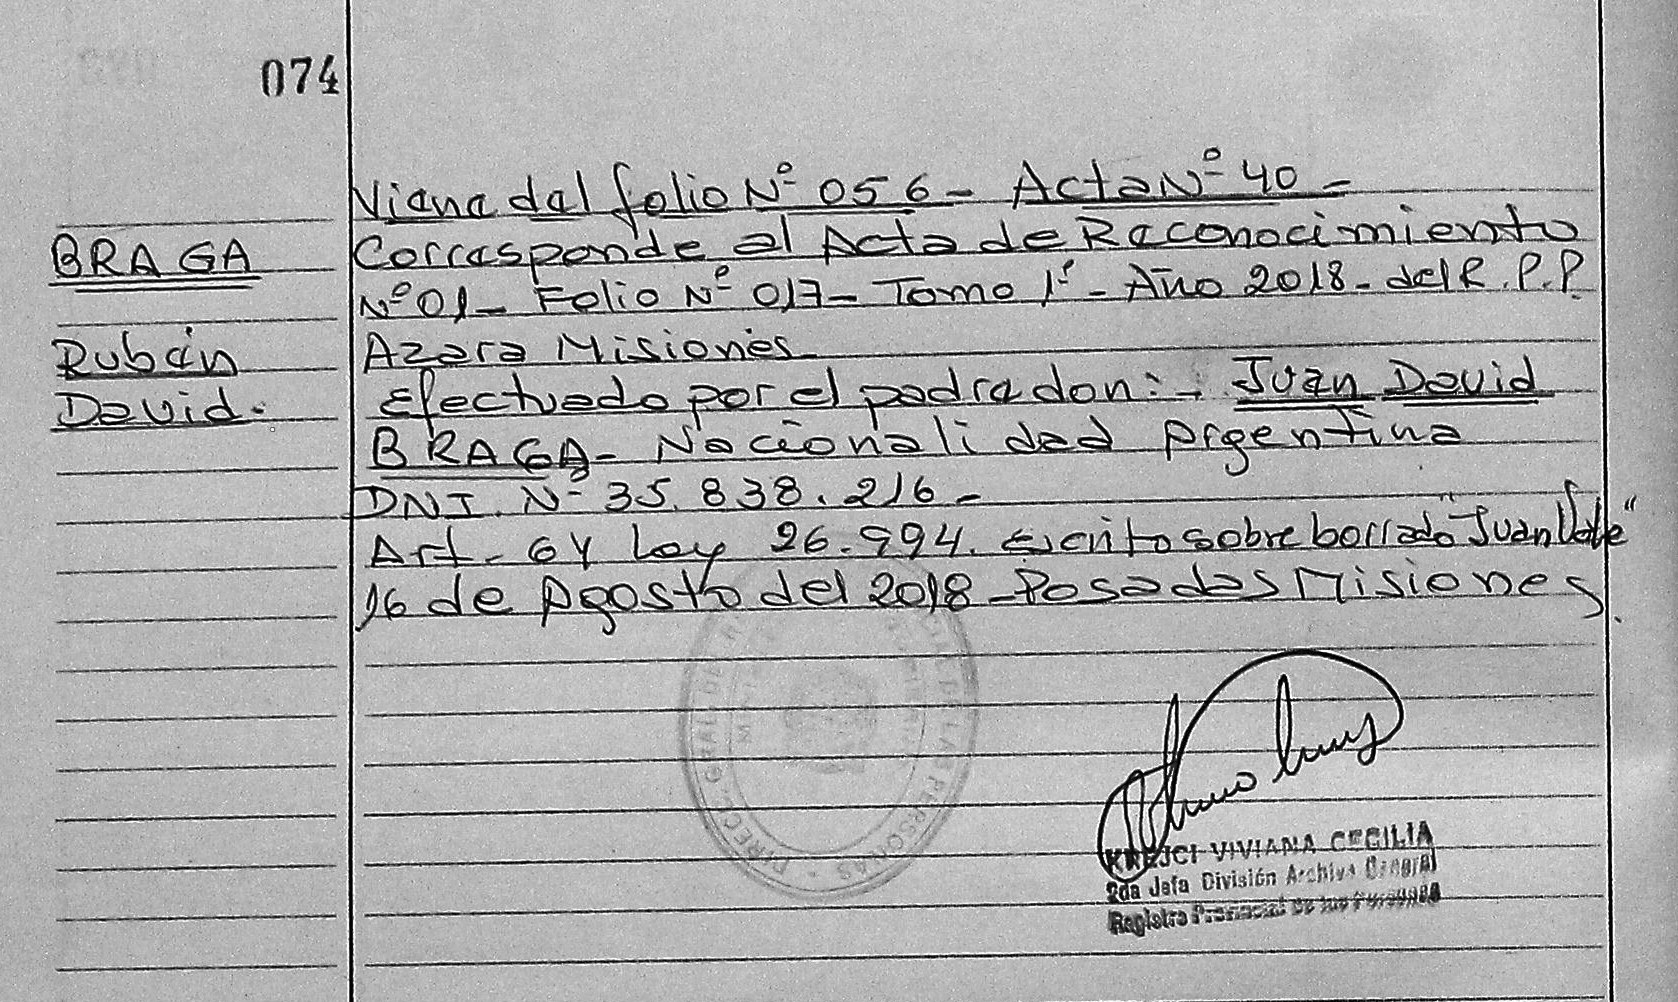 074
Viene del folio Nº 056 - Acta Nº 40 -
BRAGA
Rubén
David.
Corresponde al Acta de Reconocimiento
Nº 01 - Folio Nº 017 - Tomo 1º - Año 2018 - del R.P.P.
Azara Misiones
Efectuado por el padre don: - Juan David
BRAGA - Nacionalidad Argentina
DNI. Nº 35.838.216 -
Art - 64 Ley 26.994. Escrito sobre borrado "Juan Vale"
16 de Agosto del 2018 - Posadas Misiones.
KREJCI VIVIANA CECILIA
2da Jefa División Archivo General
Registro Provincial de las Personas